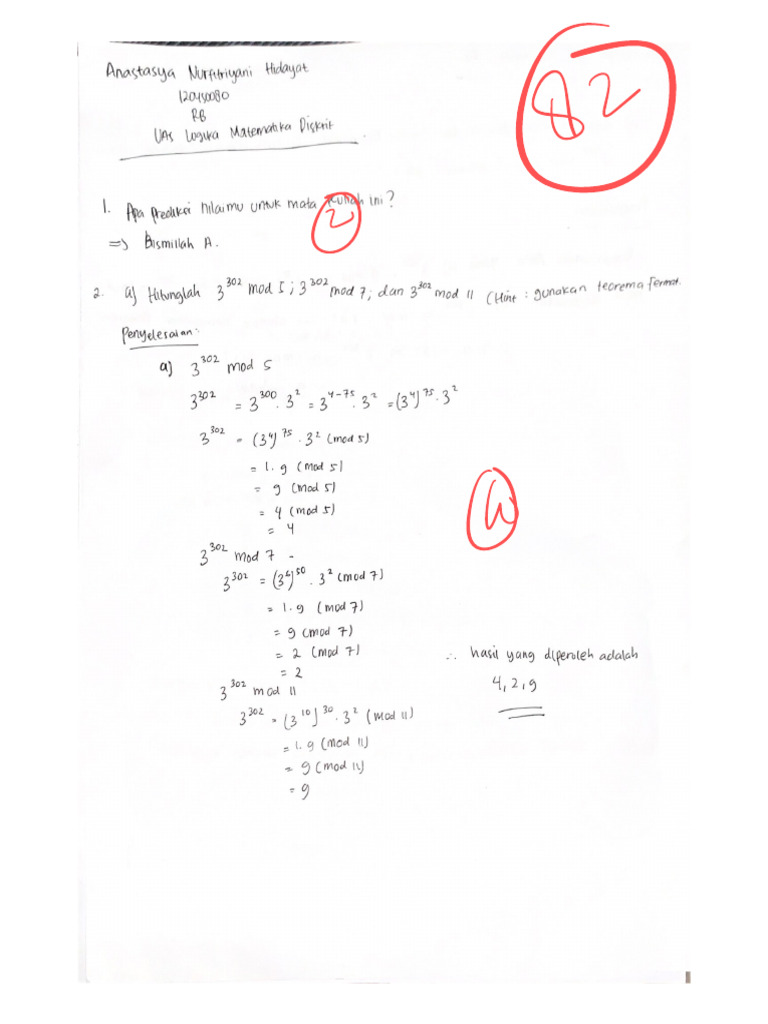 Anastasya Nurfitriyani Hidayat
82
120450080
RB
UAS Logika Matematika Diskrit
1. Apa prediksi nilaimu untuk mata kuliah ini?
2
=> Bismillah A.
2. a) Hitunglah 3^302 mod 5; 3^302 mod 7; dan 3^302 mod 11 (Hint : gunakan teorema Fermat.
Penyelesaian:
a) 3^302 mod 5
3^302 = 3^300 . 3^2 = 3^4-75 . 3^2 = (3^4)^75 . 3^2
3^302 = (3^4)^75 . 3^2 (mod 5)
= 1.9 (mod 5)
= 9 (mod 5)
= 4 (mod 5)
= 4
3^302 mod 7 -
3^302 = (3^6)^50 . 3^2 (mod 7)
= 1.9 (mod 7)
= 9 (mod 7)
= 2 (mod 7)
= 2
∴ hasil yang diperoleh adalah
4, 2, 9
3^302 mod 11
3^302 = (3^10)^30 . 3^2 (mod 11)
= 1.9 (mod 11)
= 9 (mod 11)
= 9